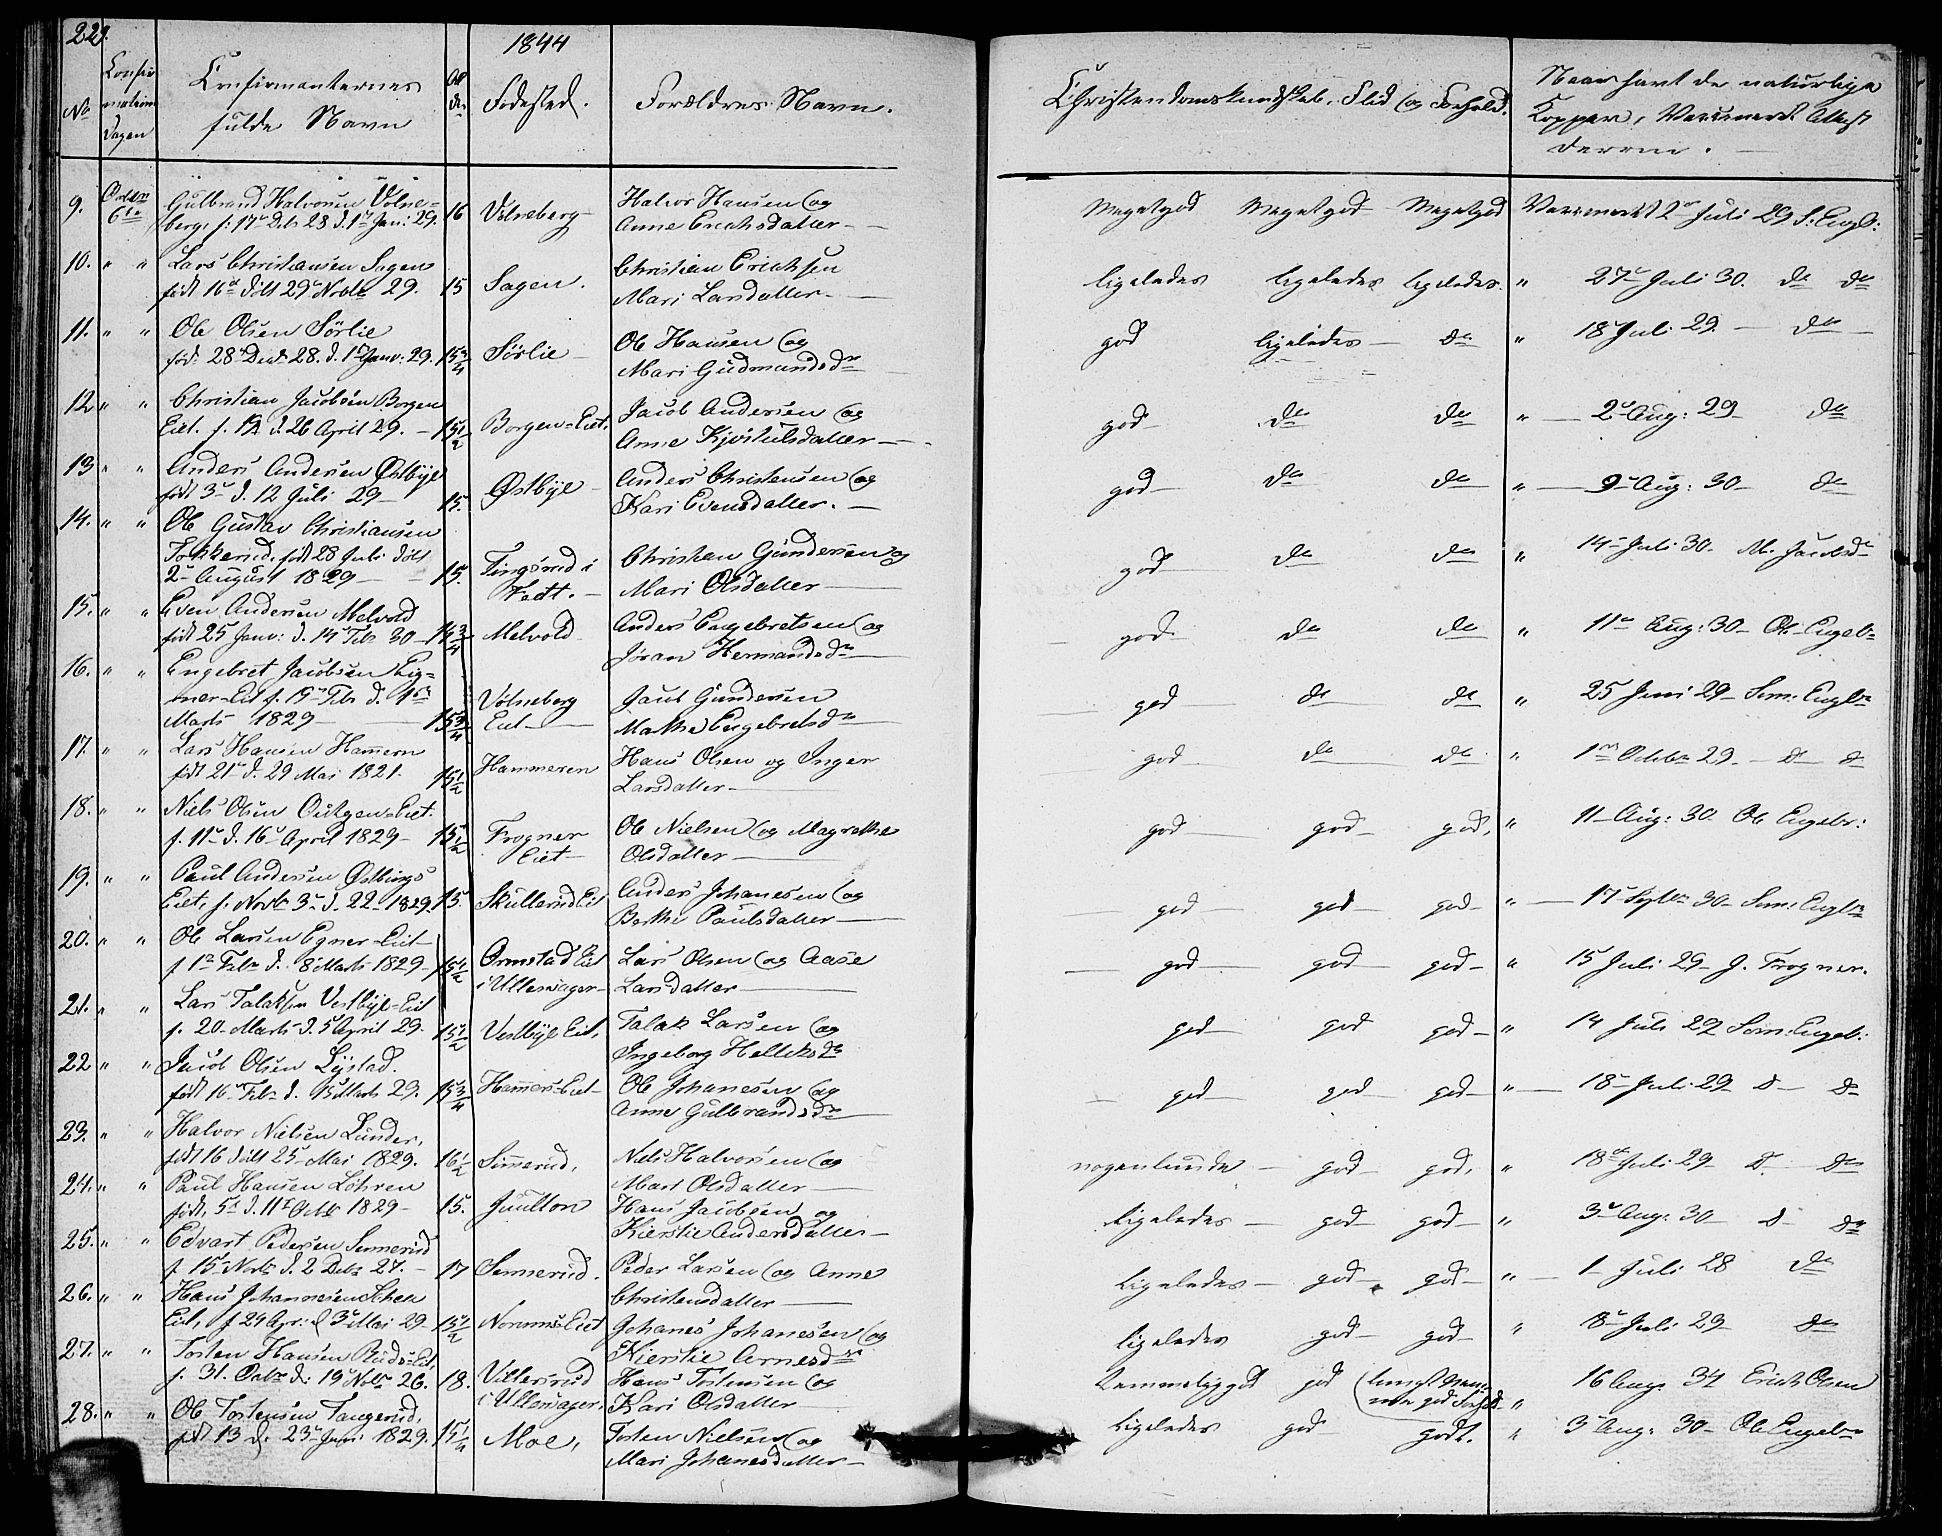 229.
1844
No
Confir
mations
Dagen
Confirmanternes
fulde Navn
Al
der
Fødested.
Forældres Navn.
Christendomskundskab, Flid og Forhold.
Naar havt de naturlige
Kopper, Vaccineret Attest
derom.
9. Octbr 6te Gulbrand Halvorsen Volne=
berg, f: 17de Dcb. 28 d. 1ste Jan: 29. 16 Volneberg Halvor Hansen og
Anne Erichsdatter Megetgod Megetgod Megetgod Vaccineret 2den Juli 29 S: Engb:
10. " " Lars Christiansen Sagen
født 16de døbt 29 Novbr 29. 15 Sagen. Christian Erichsen
Mari Larsdatter ligeledes ligeledes ligeledes. " 27de Juli 30. do do
11. " " Ole Olsen Sørlie
født 28 Decb. 28. d. 1ste Janv: 29. 15 3/4 Sørlie Ole Hansen og
Mari Gudmundsdr god ligeledes do " 18 Juli 29. do
12 " " Christian Jacobsen Borgen
Eiet. f. 12 d. 26 April 29. 15 1/2 Borgen=Eiet. Jacob Andersen og
Anne Kjøstulsdatter god do do " 2de Aug: 29 do
13 " " Anders Andersen Østbye
født 3de d. 12 Juli 29 15. Østbye Anders Christensen og
Kari Evensdatter. god do do " 9de Aug: 30 do
14. " " Ole Gustav Christiansen
født 28 Juli døbt
2de August 1829 15. Tingsrud i
Fedt. Christian Gundersen og
Mari Olsdatter god do do " 14 Juli 30. M. Jacobsdr
15. " " Even Andersen Melvold
født 25 Janv: d. 14 Febr 30 14 3/4 Melvold Anders Engebretsen og
Jøran Hermandsdr god do do " 11te Aug: 30 Ole Engebr
16. " " Engebret Jacobsen Eig=
ner=Eiet f. 19de Febr d. 1ste
Marts 1829 15 3/4 Volneberg
Eiet Gundersen
Marthe Engebretsdr god do do " 25 Juni 29 Sim: Engbr
17. " " Lars Hansen Hamern
født 21de d. 29 Mai 1821. 15 1/2 Hammeren Hans Olsen og Inger
Larsdatter god do do " 1ste Octobr 29. do do
18. " " Niels Olsen Eiet.
f. 11te d. 16de April 1829 15 1/2 Frogner
Eiet Ole Nielsen og Magrethe
Olsdatter god god god, " 11 Aug: 30 Ole Engebr:
19. " " Paul Andersen Østbings
Eiet, f. Novbr 3de d. 22 1829. 15. Skullerud Eiet Anders Johanesen og
Berthe Paulsdatter god god god " 17 Septbr 30 Sim: Engbr
20. " " Ole Larsen Egner=Eiet
f 1ste Febr d. 8 Marts 1829 15 1/2 Ormstad Eiet
i Ullensager Lars Olsen og Aase
Larsdatter god god god " 15 Juli 29 J. Frogner.
21. " " Lars Talaksen Vestbye=Eiet
f. 20. Marts d. 5 April 29. 15 1/2 Vestbye Eiet, Talak Larsen og
Ingeborg Helleksdr god god god " 14 Juli 29 Sim: Engeb:
22 " " Jacob Olsen Lystad.
født 16 Febr d. Marts 29. 15 3/4 Hamers=Eiet Ole Johanesen og
Anne Gulbrandsdr god god god " 18 Juli 29 do do
23. " " Halvor Nielsen Lunder,
født 16 døbt 25 Mai 1829. 16 1/2 Simerud, Niels Halvorsen og
Mari Olsdatter nogenlunde god god, " 18de Juli 29 do do
24. " " Paul Hansen Løhren
født, 5te d. 11te Octbr 1829 15. Juulton Hans Jacobsen og
Kierstie Andersdatter ligeledes god god " 3de Aug: 30 do do
25. " " Edvart Pedersen Simerud
f 15 Novbr d. 2 Debr 27. 17 Simerud. Peder Larsen og Anne
Christensdatter ligeledes god god " 1 Juli 28 do
26. " " Hans Johannesen
Eiet, f 24 Apr: d 3de Mai 29 15 1/2 Norums=Eiet Johanes Johanesen og
Kierstie Arnesdr ligeledes god god " 8de Juli 29 do
27. " " Torsten Hansen Ruds=Eiet,
f. 31. Octbr d: 19 Novbr 26. 18. Villersrud
i Ullensager, Hans Torstensen og
Kari Olsdatter temmeliggod god " 16 Aug. 34 Erich Olsen
28. " " Ole Torstensen Tangerud,
født 13 d. 23de Juni 1829. 15 1/4 Moe, Torsten Nielsen og
Mari Johanesdatter ligeledes god godt. " 3de Aug: 30 Ole Engebr